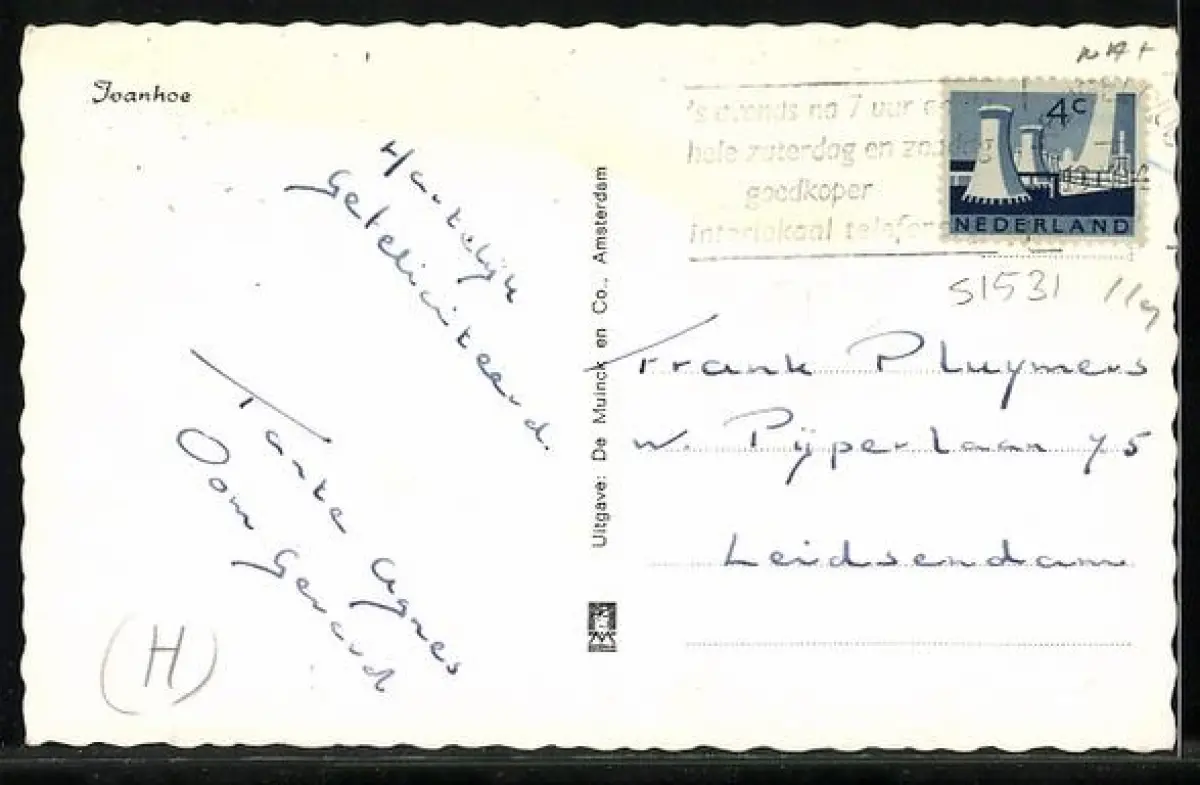 Ivanhoe
Hartelijk
Gefeliciteerd.
Tante Agnes
Oom Gerard
(H)
Uitgave: De Muinck en Co., Amsterdam
's avonds na 7 uur
hele zaterdag en zondag
goedkoper
interlokaal
4c
NEDERLAND
S1531
Frank Pluymers
W. Pijperlaan 75
Leidsendam